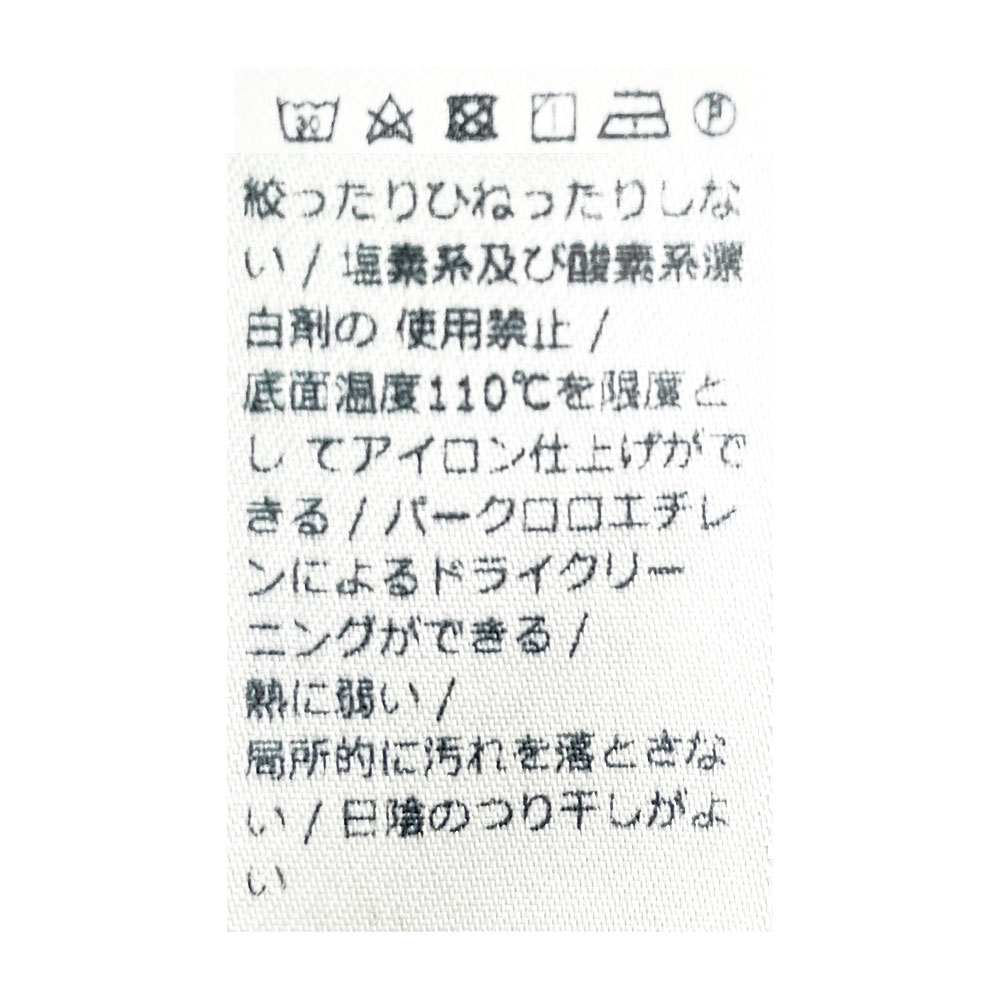 30 P
絞ったりひねったりしな
い / 塩素系及び酸素系漂
白剤の 使用禁止 /
底面温度110℃を限度と
し てアイロン仕上げがで
きる / パークロロエチレ
ンによるドライクリー
ニングができる /
熱に弱い /
局所的に汚れを落とさな
い / 日陰のつり干しがよ
い